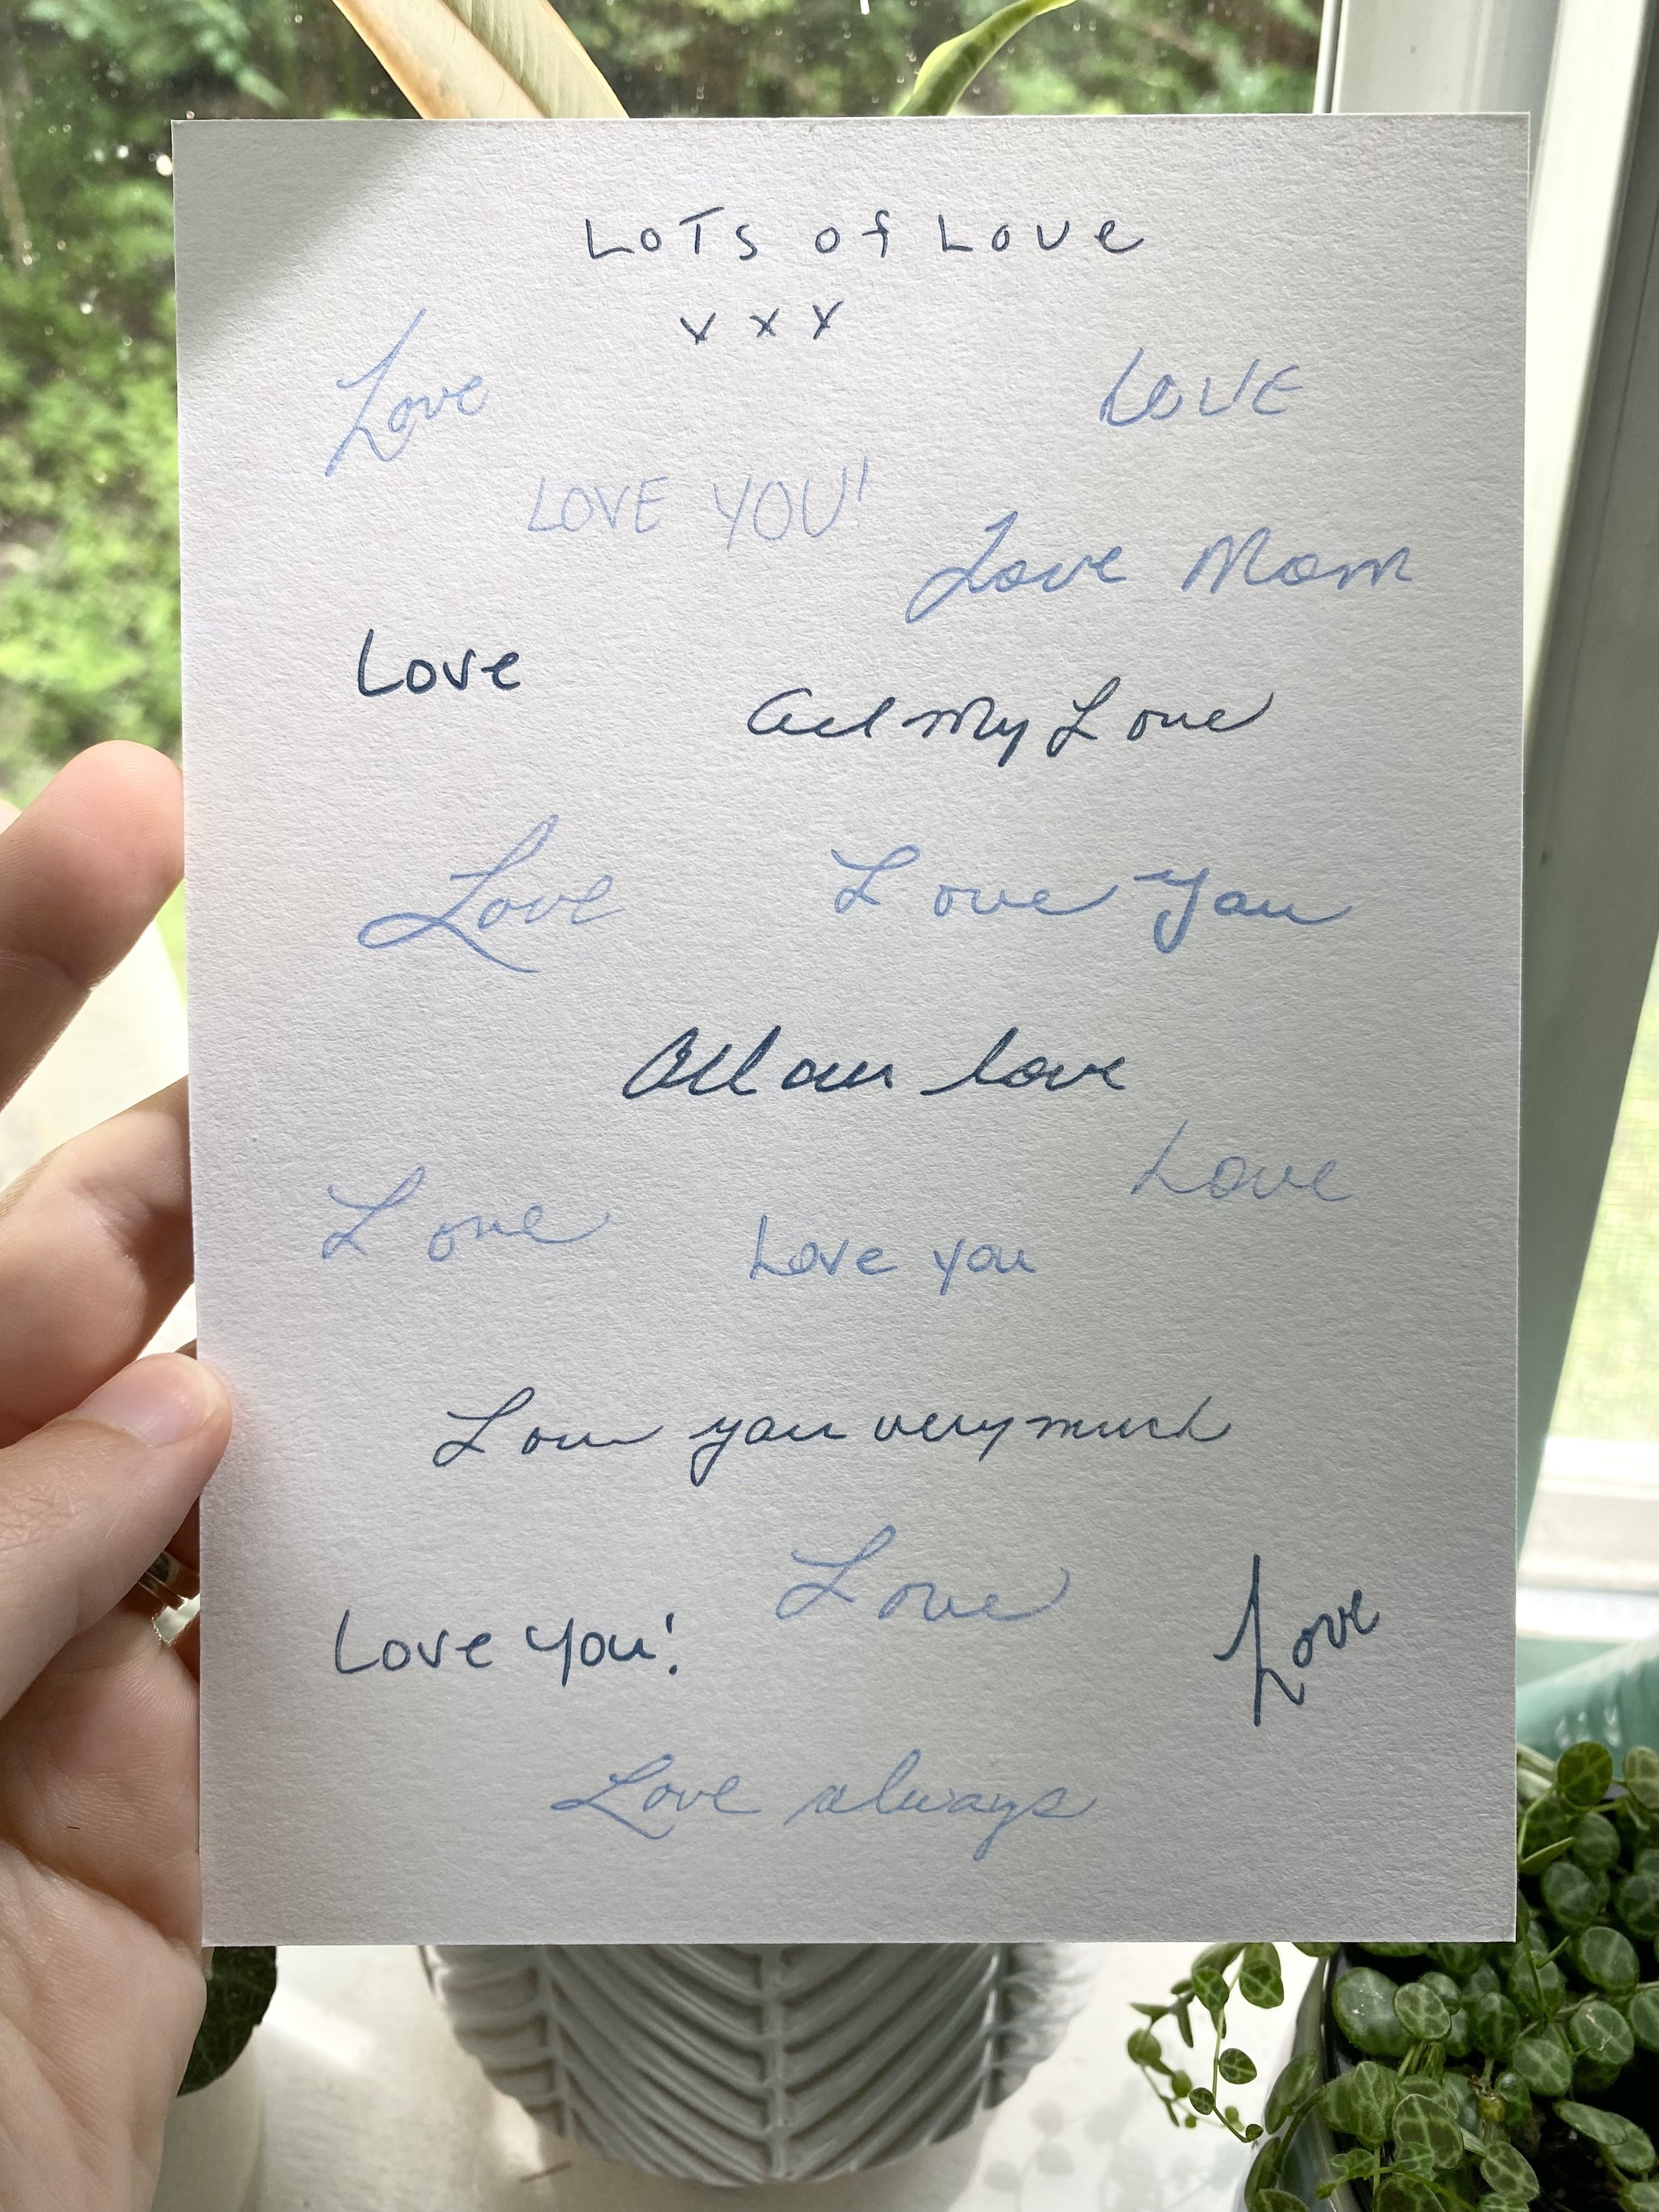 LoTs of Love
x x x
Love
LOVE
LOVE YOU!
Love Mom
Love
All My Love
Love
Love You
All our love
Love
Love
Love you
Love you very much
Love
Love You!
Love
Love always